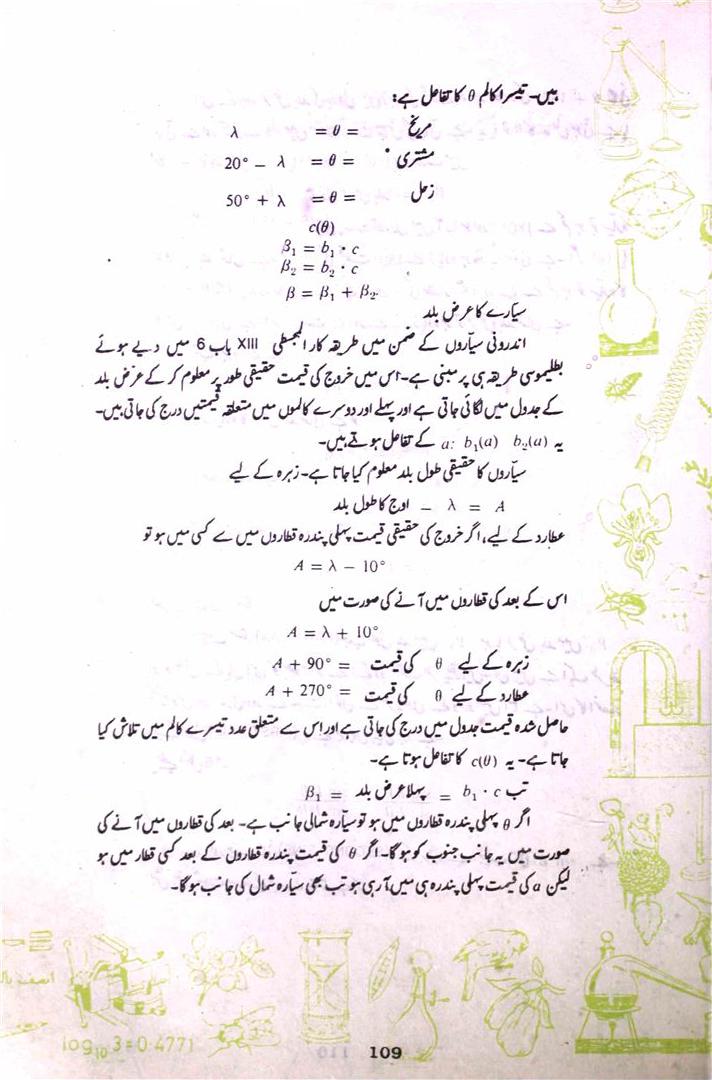 ہیں۔ تیسرا کالم θ کا تفاعل ہے:
مریخ = θ = λ
مشتری = θ = λ − 20°
زحل = θ = λ + 50°
c(θ)
β₁ = b₁ · c
β₂ = b₂ · c
β = β₁ + β₂
سیارے کا عرض بلد
اندرونی سیاروں کے ضمن میں طریقہ کار المجسطی XIII باب 6 میں دیے ہوئے
بطلیموسی طریقہ ہی پر مبنی ہے۔ اس میں خروج کی قیمت حقیقی طور پر معلوم کر کے عرض بلد
کے جدول میں لگائی جاتی ہے اور پہلے اور دوسرے کالموں میں متعلقہ قیمتیں درج کی جاتی ہیں۔
یہ a: b₁(a) b₂(a) کے تفاعل ہوتے ہیں۔
سیاروں کا حقیقی طول بلد معلوم کیا جاتا ہے۔ زہرہ کے لیے
A = λ − اوج کا طول بلد
عطارد کے لیے، اگر خروج کی حقیقی قیمت پہلی پندرہ قطاروں میں سے کسی میں ہو تو
A = λ − 10°
اس کے بعد کی قطاروں میں آنے کی صورت میں
A = λ + 10°
زہرہ کے لیے θ کی قیمت = A + 90°
عطارد کے لیے θ کی قیمت = A + 270°
حاصل شدہ قیمت جدول میں درج کی جاتی ہے اور اس سے متعلق عدد تیسرے کالم میں تلاش کیا
جاتا ہے۔ یہ c(θ) کا تفاعل ہوتا ہے۔
تب b₁ · c = پہلا عرض بلد = β₁
اگر θ پہلی پندرہ قطاروں میں ہو تو سیارہ شمالی جانب ہے۔ بعد کی قطاروں میں آنے کی
صورت میں یہ جانب جنوب کو ہوگا۔ اگر θ کی قیمت پندرہ قطاروں کے بعد کسی قطار میں ہو
لیکن a کی قیمت پہلی پندرہ ہی میں آرہی ہو تب بھی سیارہ شمال کی جانب ہوگا۔
log₁₀ 3=0·4771
109